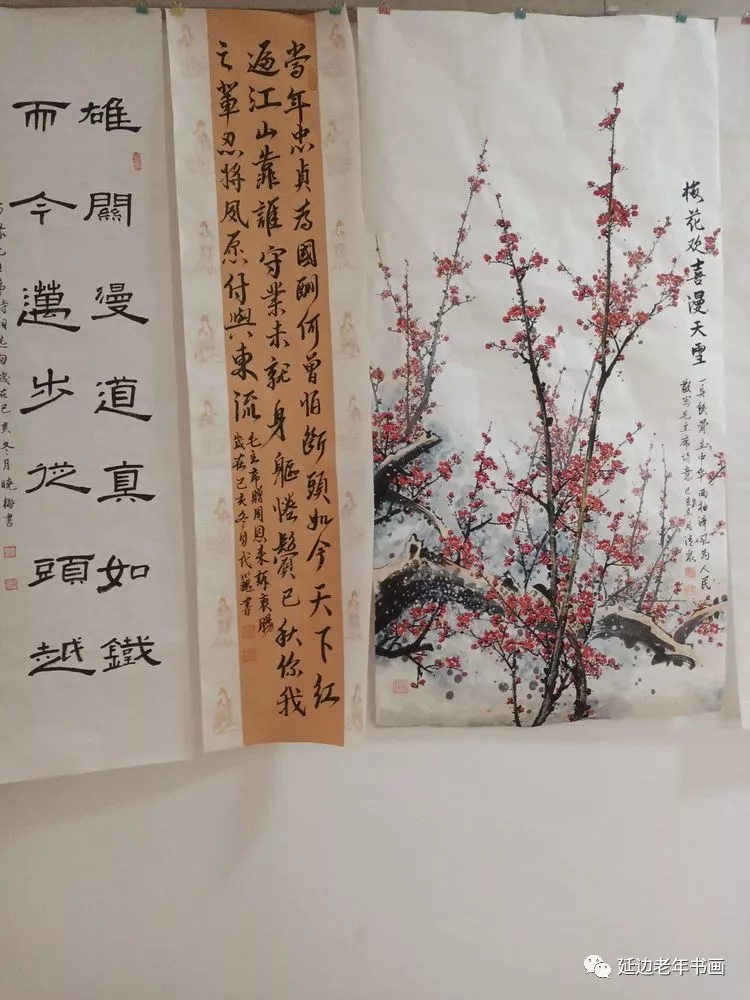 雄關漫道真如鐵
而今邁步從頭越
歲在己亥冬月曉梅書
當年忠貞為國酬何曾怕斷頭如今天下紅
遍江山靠誰守業未就身軀惓鬢已秋你我
之輩忍將夙愿付與東流
毛主席贈周恩來訴衷腸
歲在己亥冬月代巍書
梅花欢喜漫天雪
一身铁骨立中华
为人民
敬写毛主席诗意己亥冬
延边老年书画